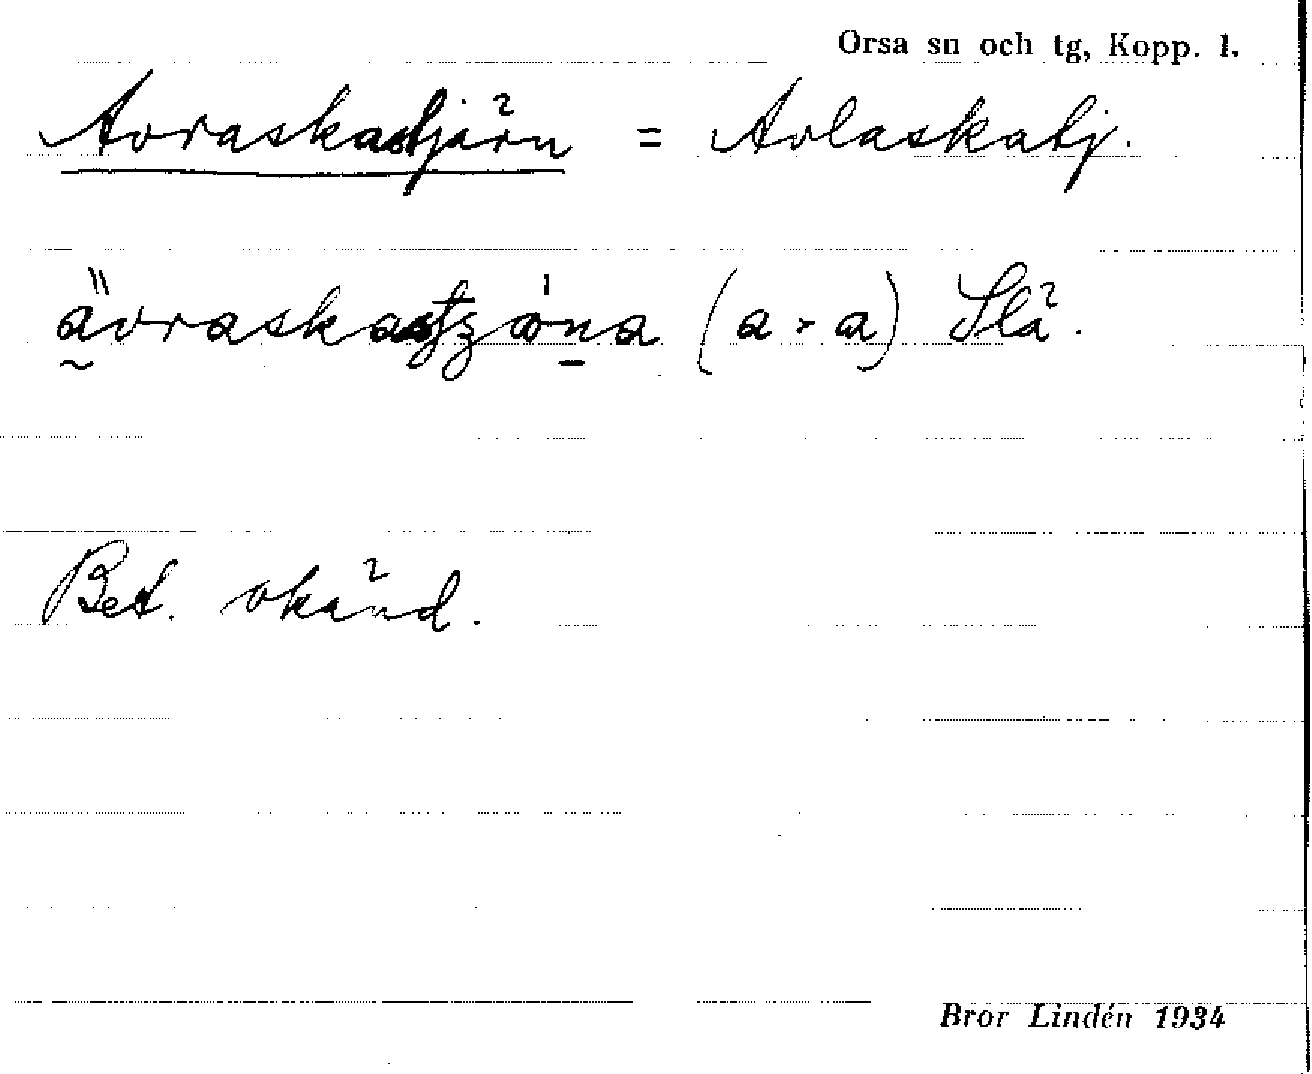 Orsa sn och tg, Kopp. l.
Avraskastjärn = Avlaskatj.
(a - a) Slä.
Bet. okänd.
Bror Lindén 1934